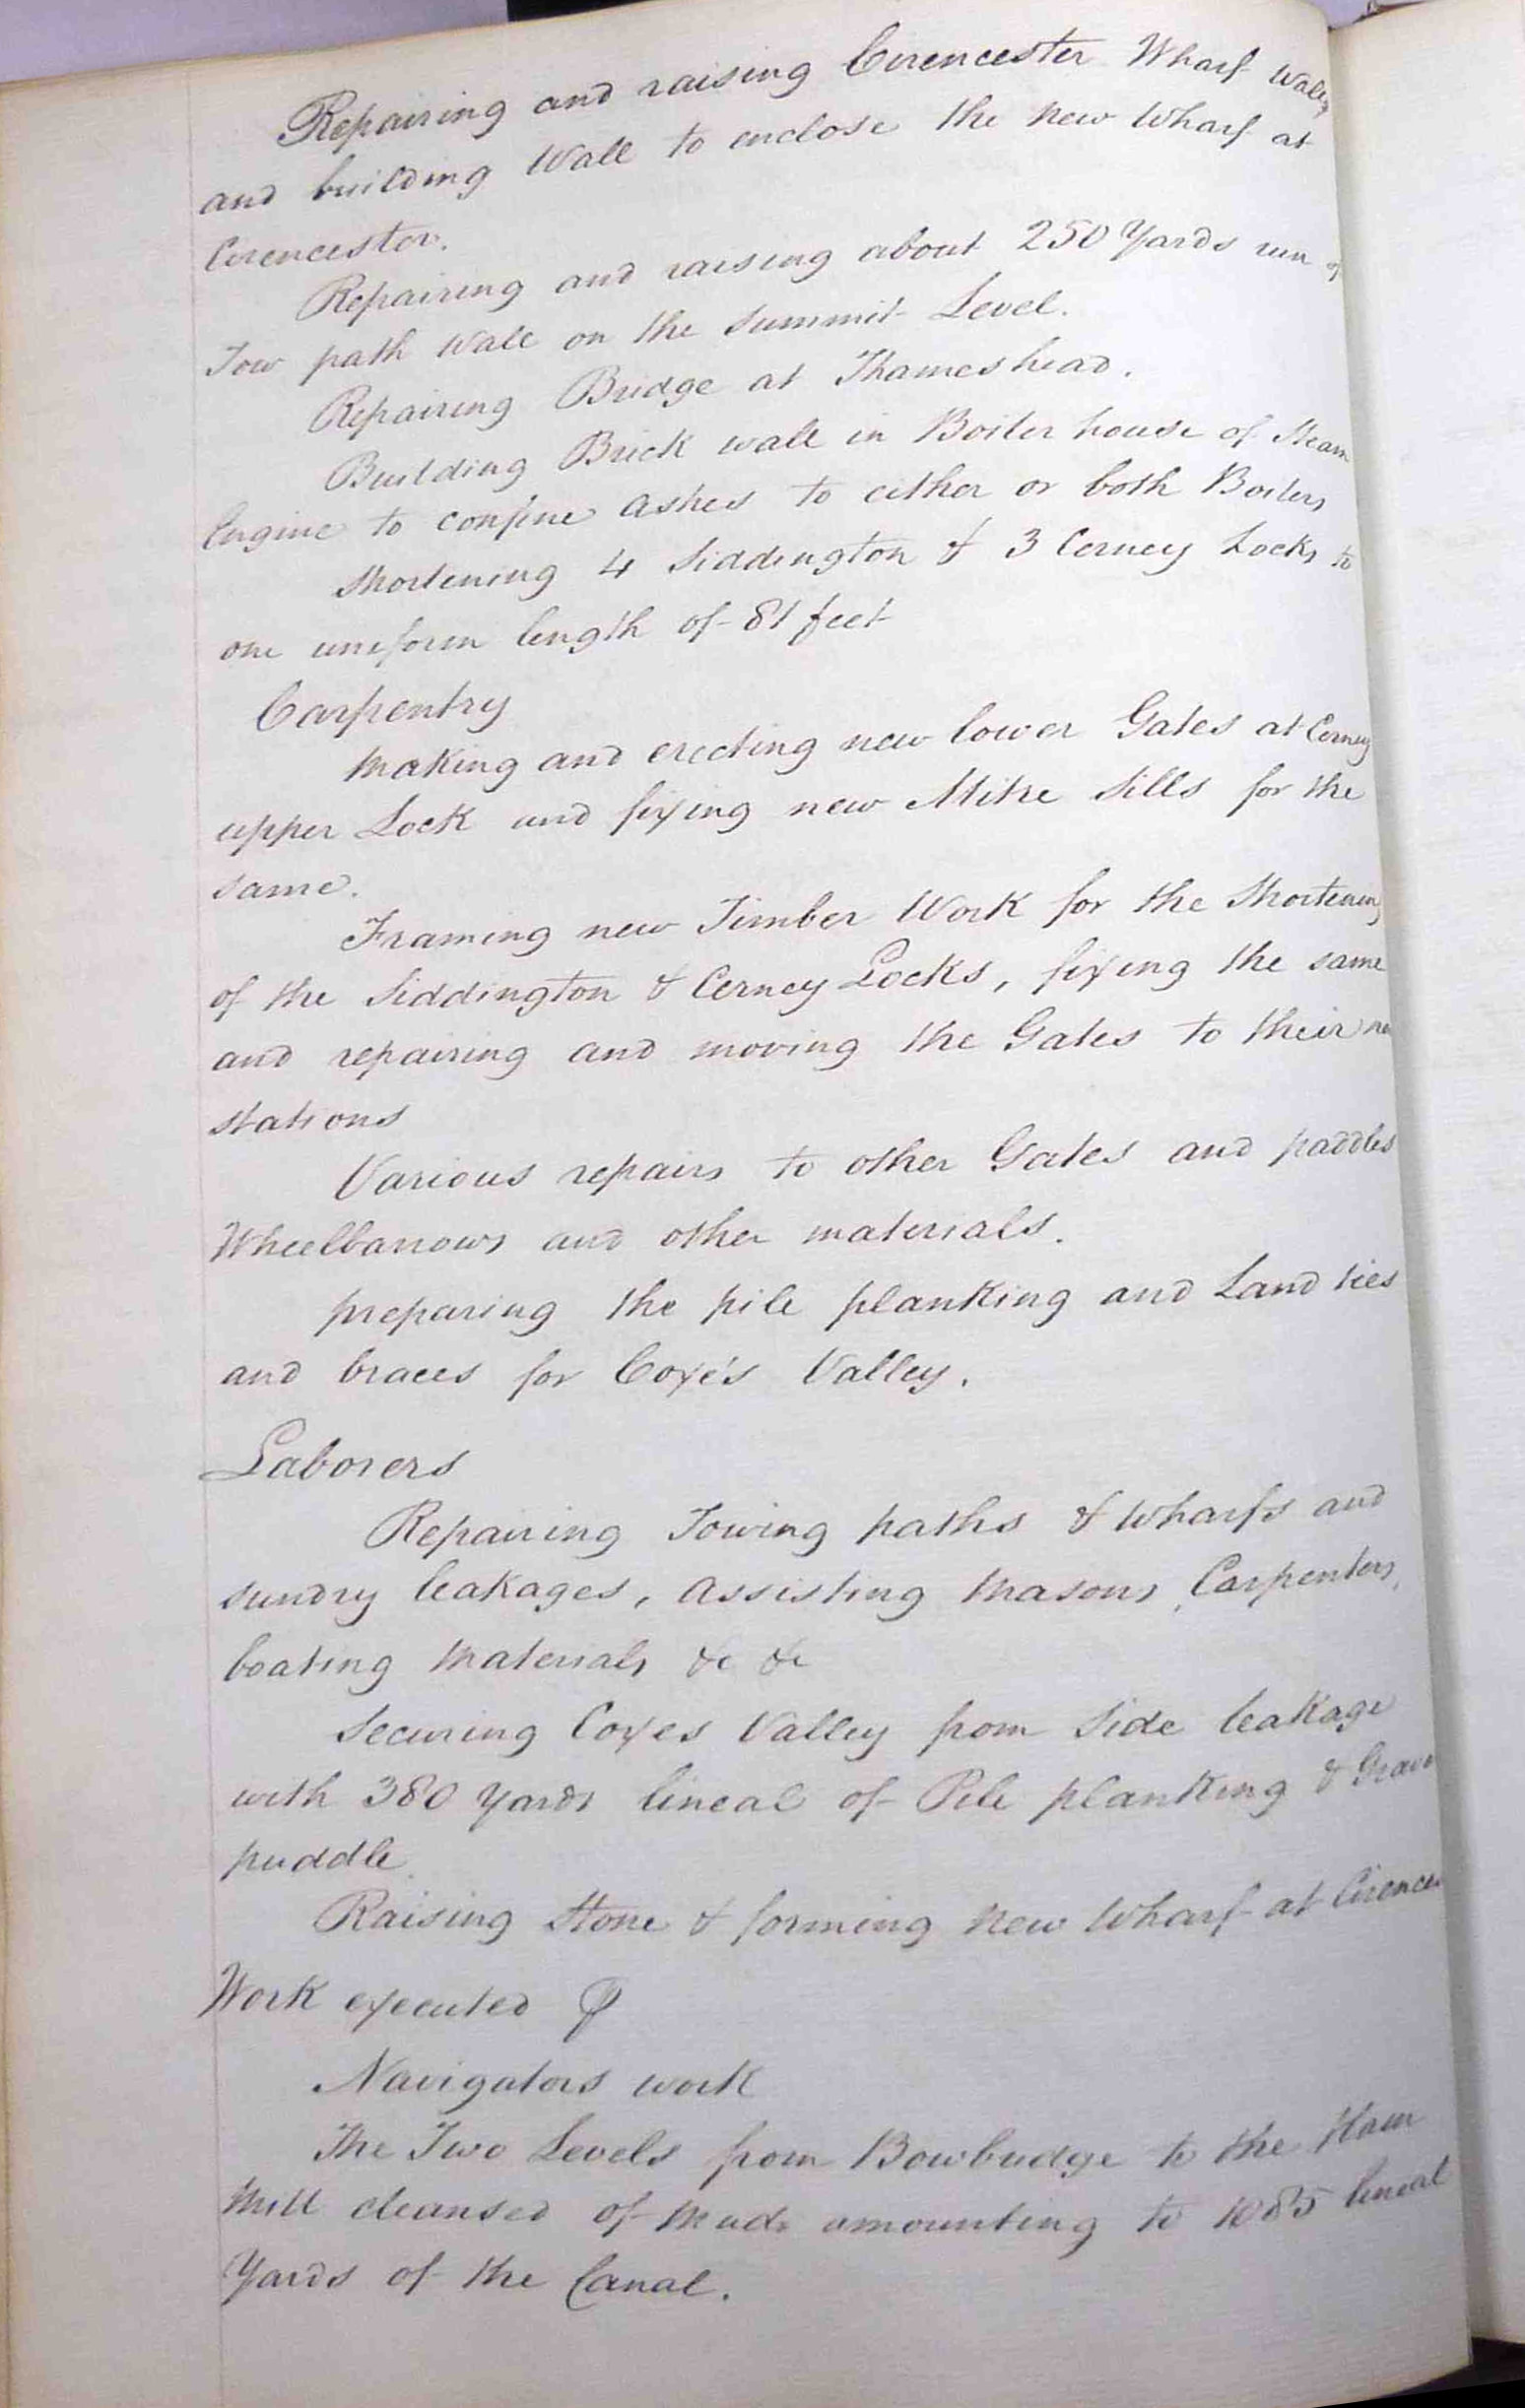 Repairing and raising Cirencester Wharf Walls
and building Wall to enclose the New Wharf at
Cirencester.
Repairing and raising about 250 Yards run of
Tow path Wall on the Summit Level.
Repairing Bridge at Thameshead.
Building Brick wall in Boiler house of Steam
Engine to confine Ashes to either or both Boilers
Shortening 4 Siddington & 3 Cerney Locks to
one uniform length of 81 feet
Carpentry
Making and erecting new lower Gates at Cerney
upper Lock and fixing new Mitre Sills for the
same.
Framing new Timber Work for the Shortening
of the Siddington & Cerney Locks, fixing the same
and repairing and moving the Gates to their
stations
Various repairs to other Gates and paddles
Wheelbarrows and other materials.
preparing the pile planking and Land ties
and braces for Coxe's Valley.
Laborers
Repairing Towing paths & Wharfs and
sundry leakages, Assisting Masons, Carpenters,
boating Materials &c &c
Securing Coxes Valley from Side leakage
with 380 Yards lineal of Pile planking & Grave
puddle
Raising Stone & forming New Wharf at Cirences
Work executed
Navigators work
The Two Levels from Bowbridge to the Ham
Mill cleansed of Mud, amounting to 1085 lineal
Yards of the Canal.